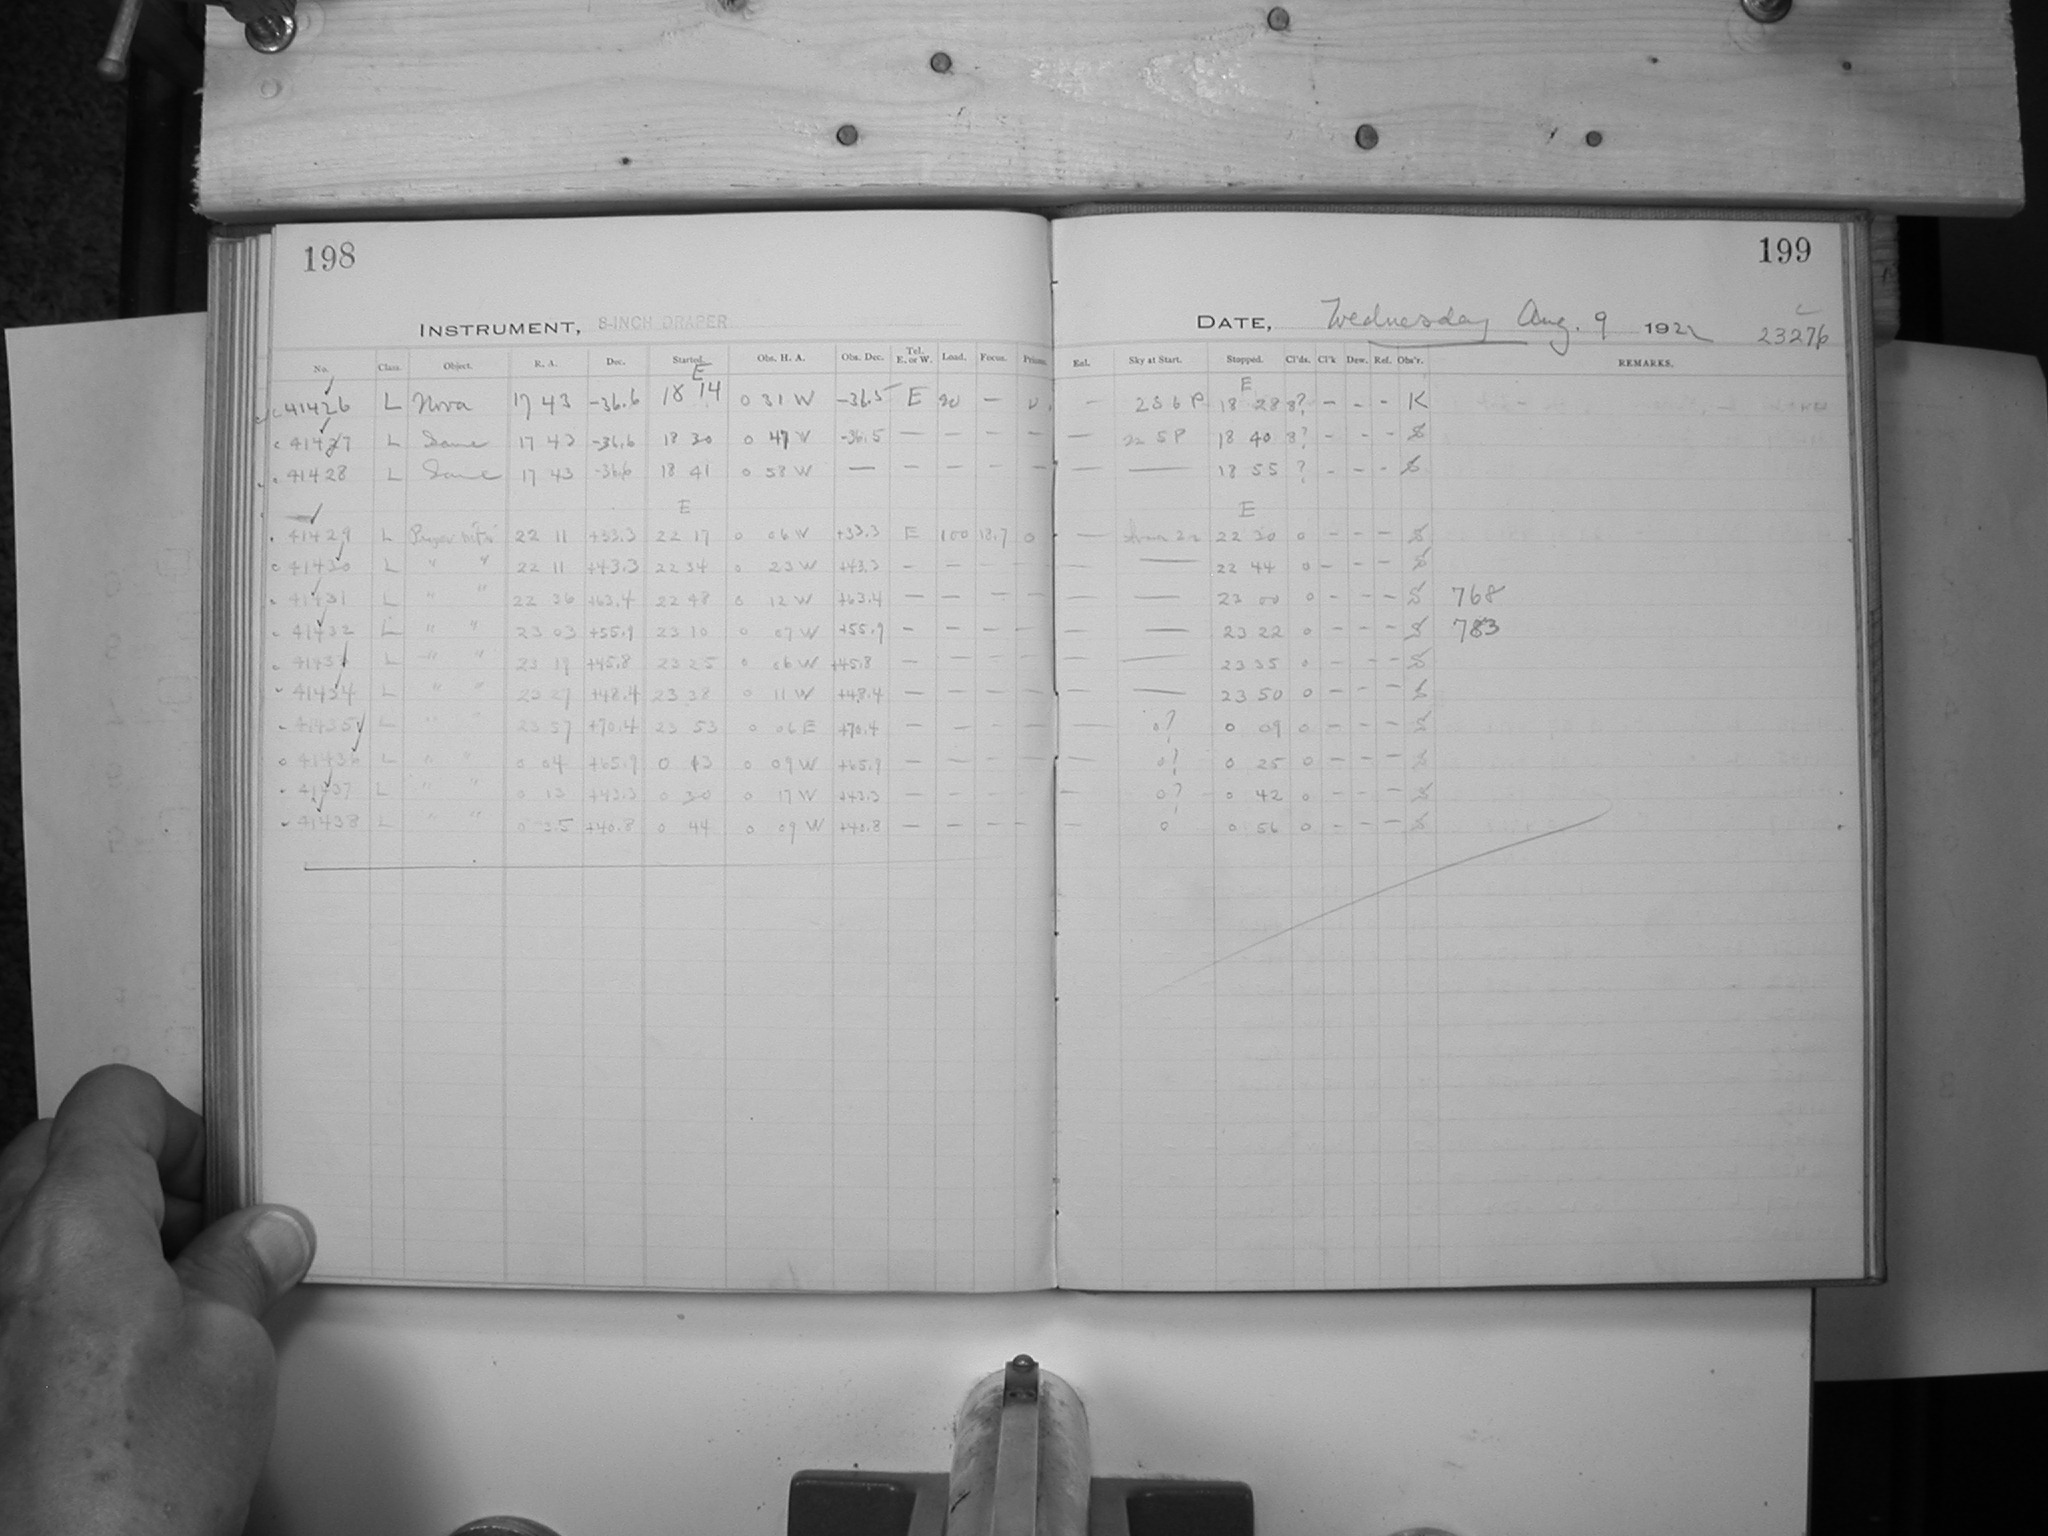 198
199
INSTRUMENT, 8-INCH DRAPER
DATE, Wednesday Aug. 9 1922 23276
No. Class. Object. R. A. Dec. Started. Obs. H. A. Obs. Dec. Tel. E. or W. Load. Focus. Prisms. Enl. Sky at Start. Stopped. Cl'ds. Cl'k Dew. Ref. Obs'r. REMARKS.
E E
41426 L Nova 17 43 -36.6 18 14 0 31 W -36.5 E 90 — — 18 28 8? - - - K
41427 L Same 17 43 -36.6 18 30 0 47 W -36.5 — — — — — 22 5 P 18 40 8? - - - S
41428 L Same 17 43 -36.6 18 41 0 58 W — — — — — — — 18 55 ? - - - S
E E
41429 L 22 11 +33.3 22 17 0 06 W +33.3 E 100 18.7 0 — 22 30 0 - - - S
41430 L " " 22 11 +43.3 22 34 0 23 W +43.3 — — — — — — 22 44 0 - - - S
41431 L " " 22 36 +63.4 22 48 0 12 W +63.4 — — — — — — 23 00 0 - - - S 768
41432 L " " 23 03 +55.9 23 10 0 07 W +55.9 — — — — — — 23 22 0 - - - S 783
41433 L " " 23 19 +45.8 23 25 0 06 W +45.8 — — — — — — 23 35 0 - - - S
41434 L " " 23 27 +48.4 23 38 0 11 W +48.4 — — — — — — 23 50 0 - - - S
41435 L " " 23 57 +70.4 23 53 0 06 E +70.4 — — — — — 0? 0 09 0 - - - S
41436 L " " 0 04 +65.9 0 13 0 09 W +65.9 — — — — — 0? 0 25 0 - - - S
41437 L " " 0 13 +43.3 0 30 0 17 W +43.3 — — — — — 0? 0 42 0 - - - S
41438 L " " 0 35 +40.8 0 44 0 09 W +40.8 — — — — — 0 0 56 0 - - - S